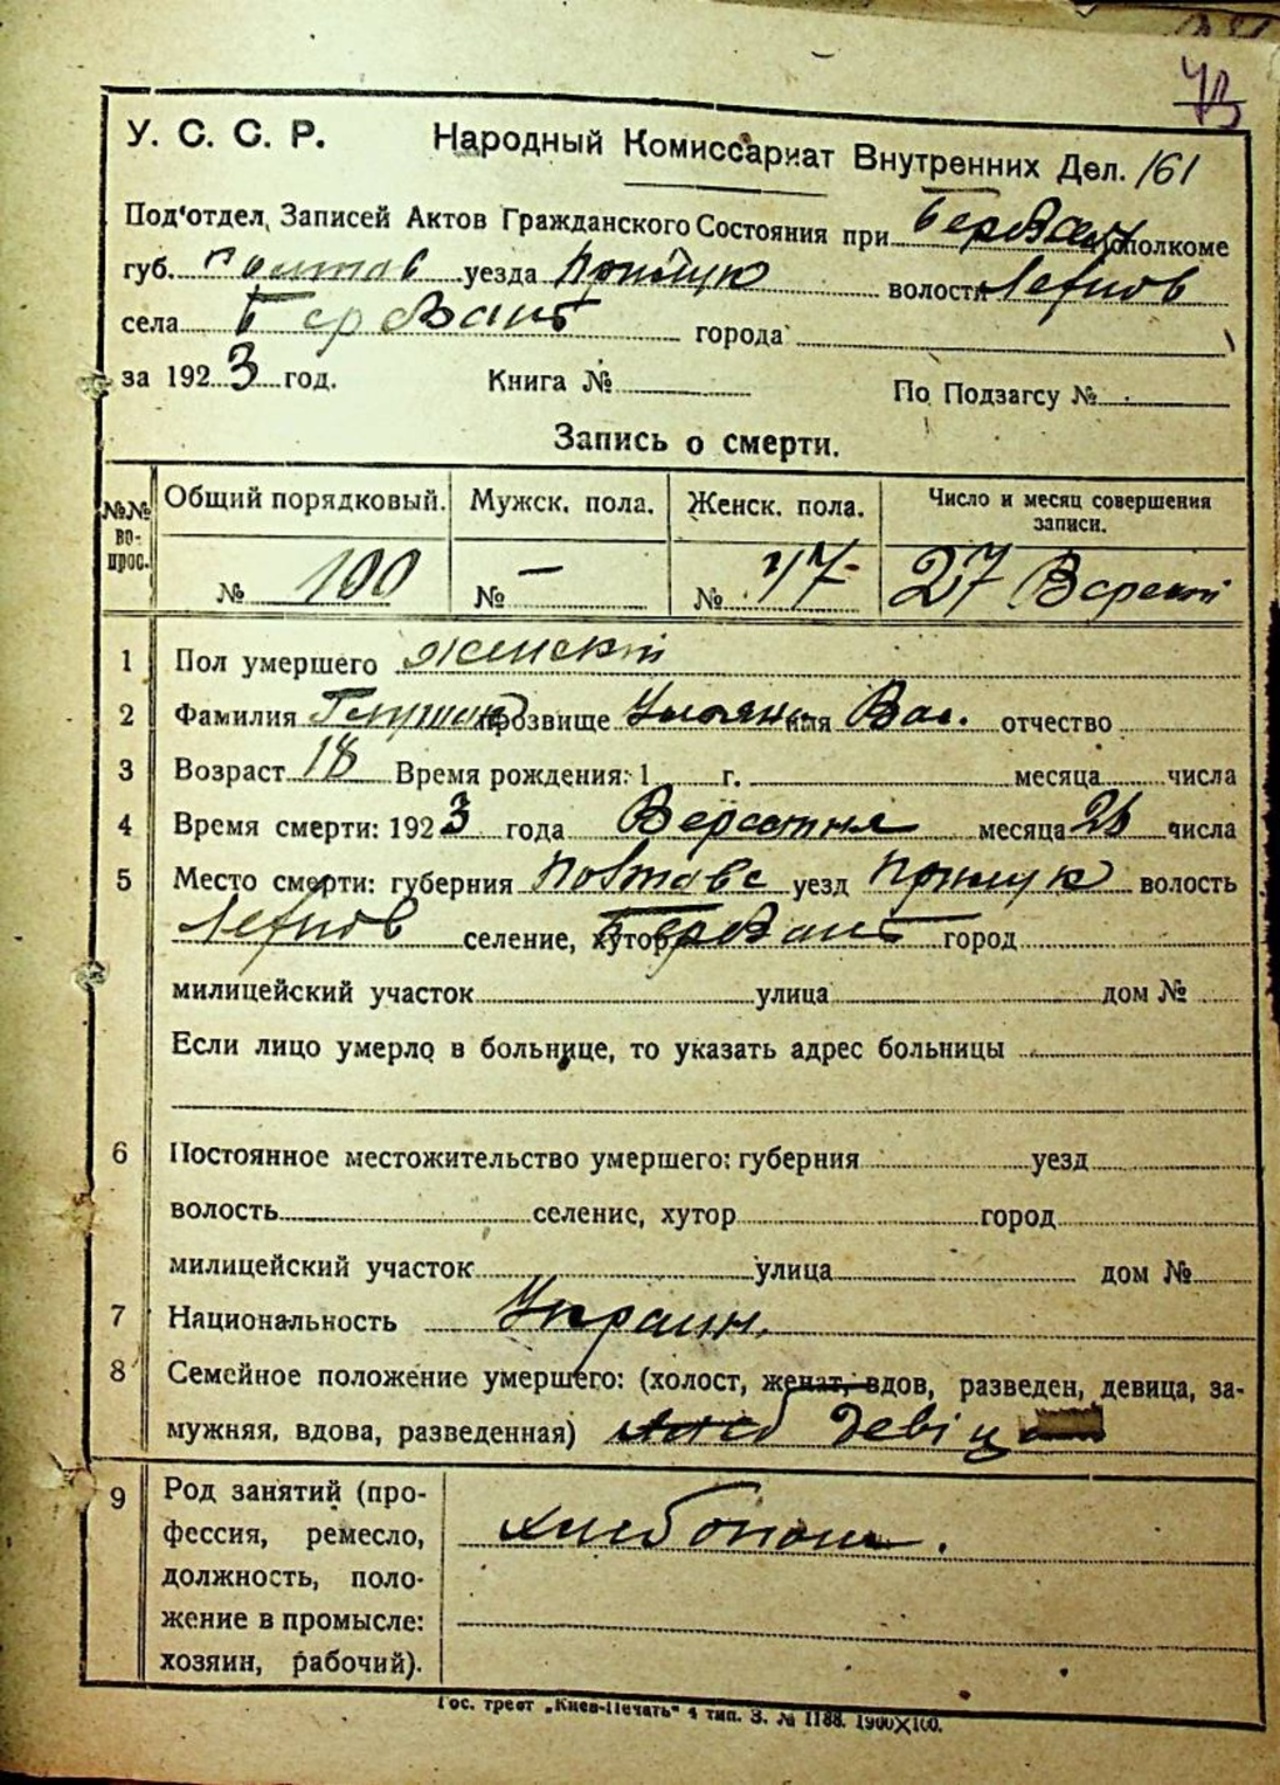 161
У. С. С. Р. Народный Комиссариат Внутренних Дел.
Под'отдел, Записей Актов Гражданского Состояния при исполкоме
губ. Полтав уезда Прилук волости
села города
за 1923 год. Книга № По Подзагсу №
Запись о смерти.
№№ вопрос. Общий порядковый. Мужск. пола. Женск. пола. Число и месяц совершения записи.
№ 100 № — № 47 27 Вересня
1 Пол умершего женский
2 Фамилия прозвище Уляна имя Вас. отчество
3 Возраст 18 Время рождения: 1 г. месяца числа
4 Время смерти: 1923 года Вересня месяца 26 числа
5 Место смерти: губерния Полтавс уезд Прилук волость
селение, хутор город
милицейский участок улица дом №
Если лицо умерло в больнице, то указать адрес больницы
6 Постоянное местожительство умершего: губерния уезд
волость селение, хутор город
милицейский участок улица дом №
7 Национальность Украин.
8 Семейное положение умершего: (холост, женат, вдов, разведен, девица, за-
мужняя, вдова, разведенная) девіца
9 Род занятий (про-
фессия, ремесло,
должность, поло-
жение в промысле:
хозяин, рабочий).
хлебопаш.
Гос. трест „Киев-Печать" 4 тип. З. № 1188. 1900X100.